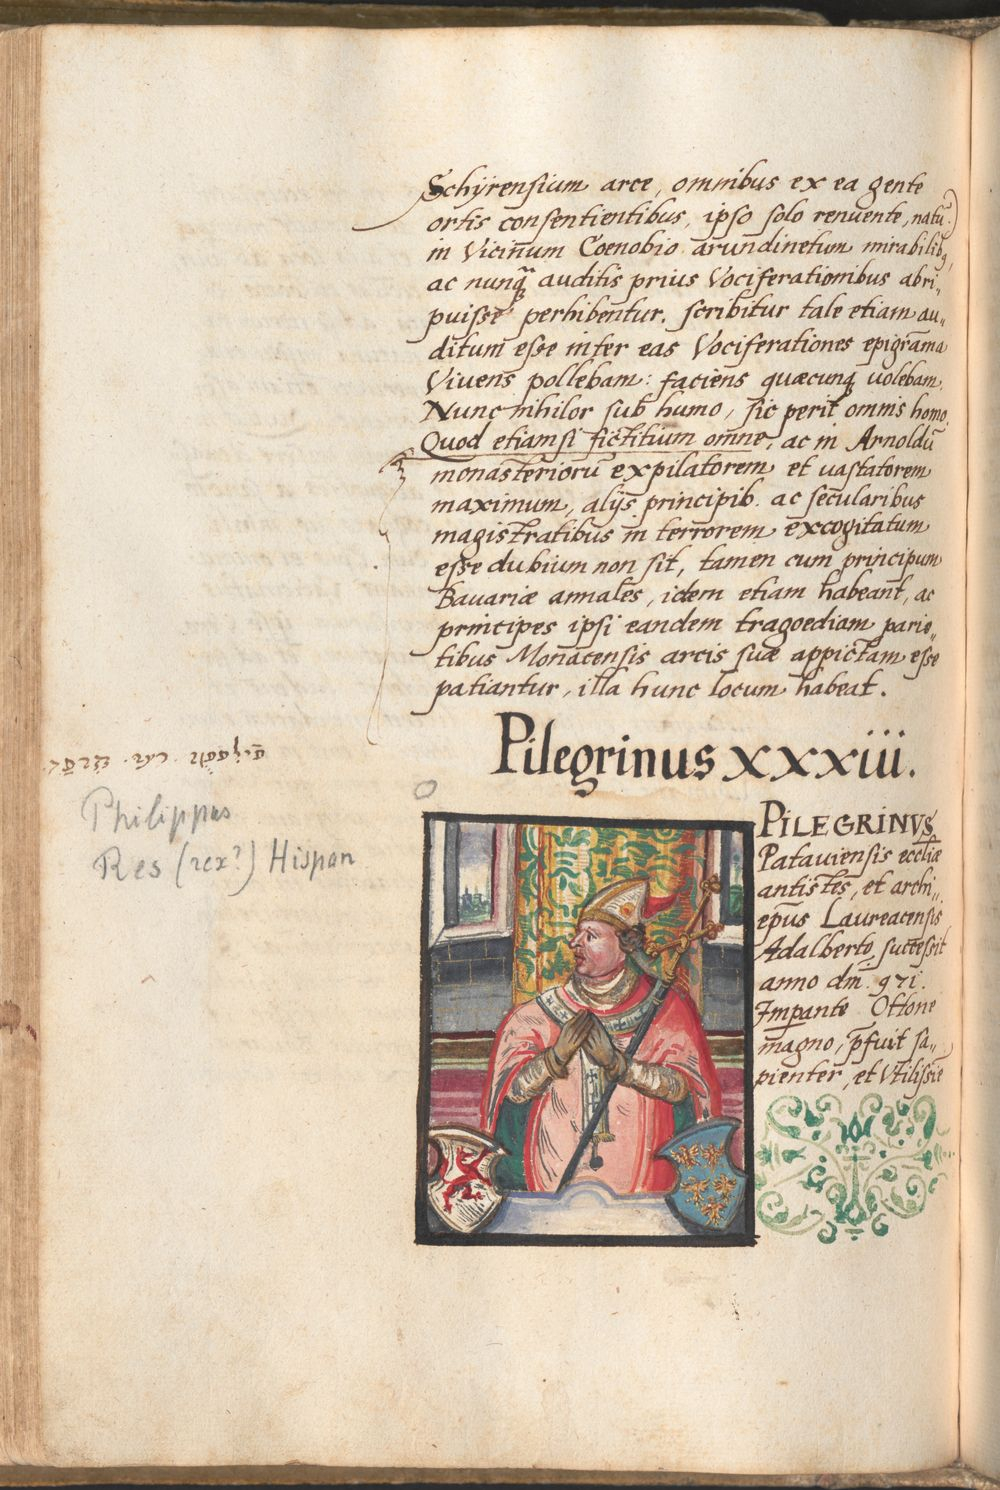 Schÿrensium arce, omnibus ex ea gente
ortis consentientibus, ipso solo renuente, natũ
in Vicinum Coenobio arundinetum mirabilibꝫ,
ac nunq̃ auditis prius Vociferationibus abri„
puisse perhibentur. scribitur tale etiam au„
ditum esse inter eas Vociferationes epigrãma
Vivens pollebam: faciens quæcunqꝫ uolebam.
Nunc nihilor sub humo, sic perit omnis homo.
Quod etiamsi fictitium omne, ac in Arnoldũ
monasteriorũ expilatorem et uastatorem
maximum, alijs principib. ac secularibus
magistratibus in terrorem excogitatum
esse dubium non sit, tamen cum principum
Bavariæ annales, idem etiam habeant, ac
principes ipsi eandem tragoediam parie„
tibus Monacensis arcis suæ appictam esse
patiantur, illa hunc locum habeat.
Pilegrinus xxxiii.
Philippus
Res (rex?) Hispan
PILEGRINVS
Patauiensis ecclĩæ
antistes, et archi„
ep̃us Laureacensis
Adalberto successit
anno dm̃. 971.
Imp̱ante Ottone
magno, p̃fuit sa„
pienter, et Vtilissiẽ